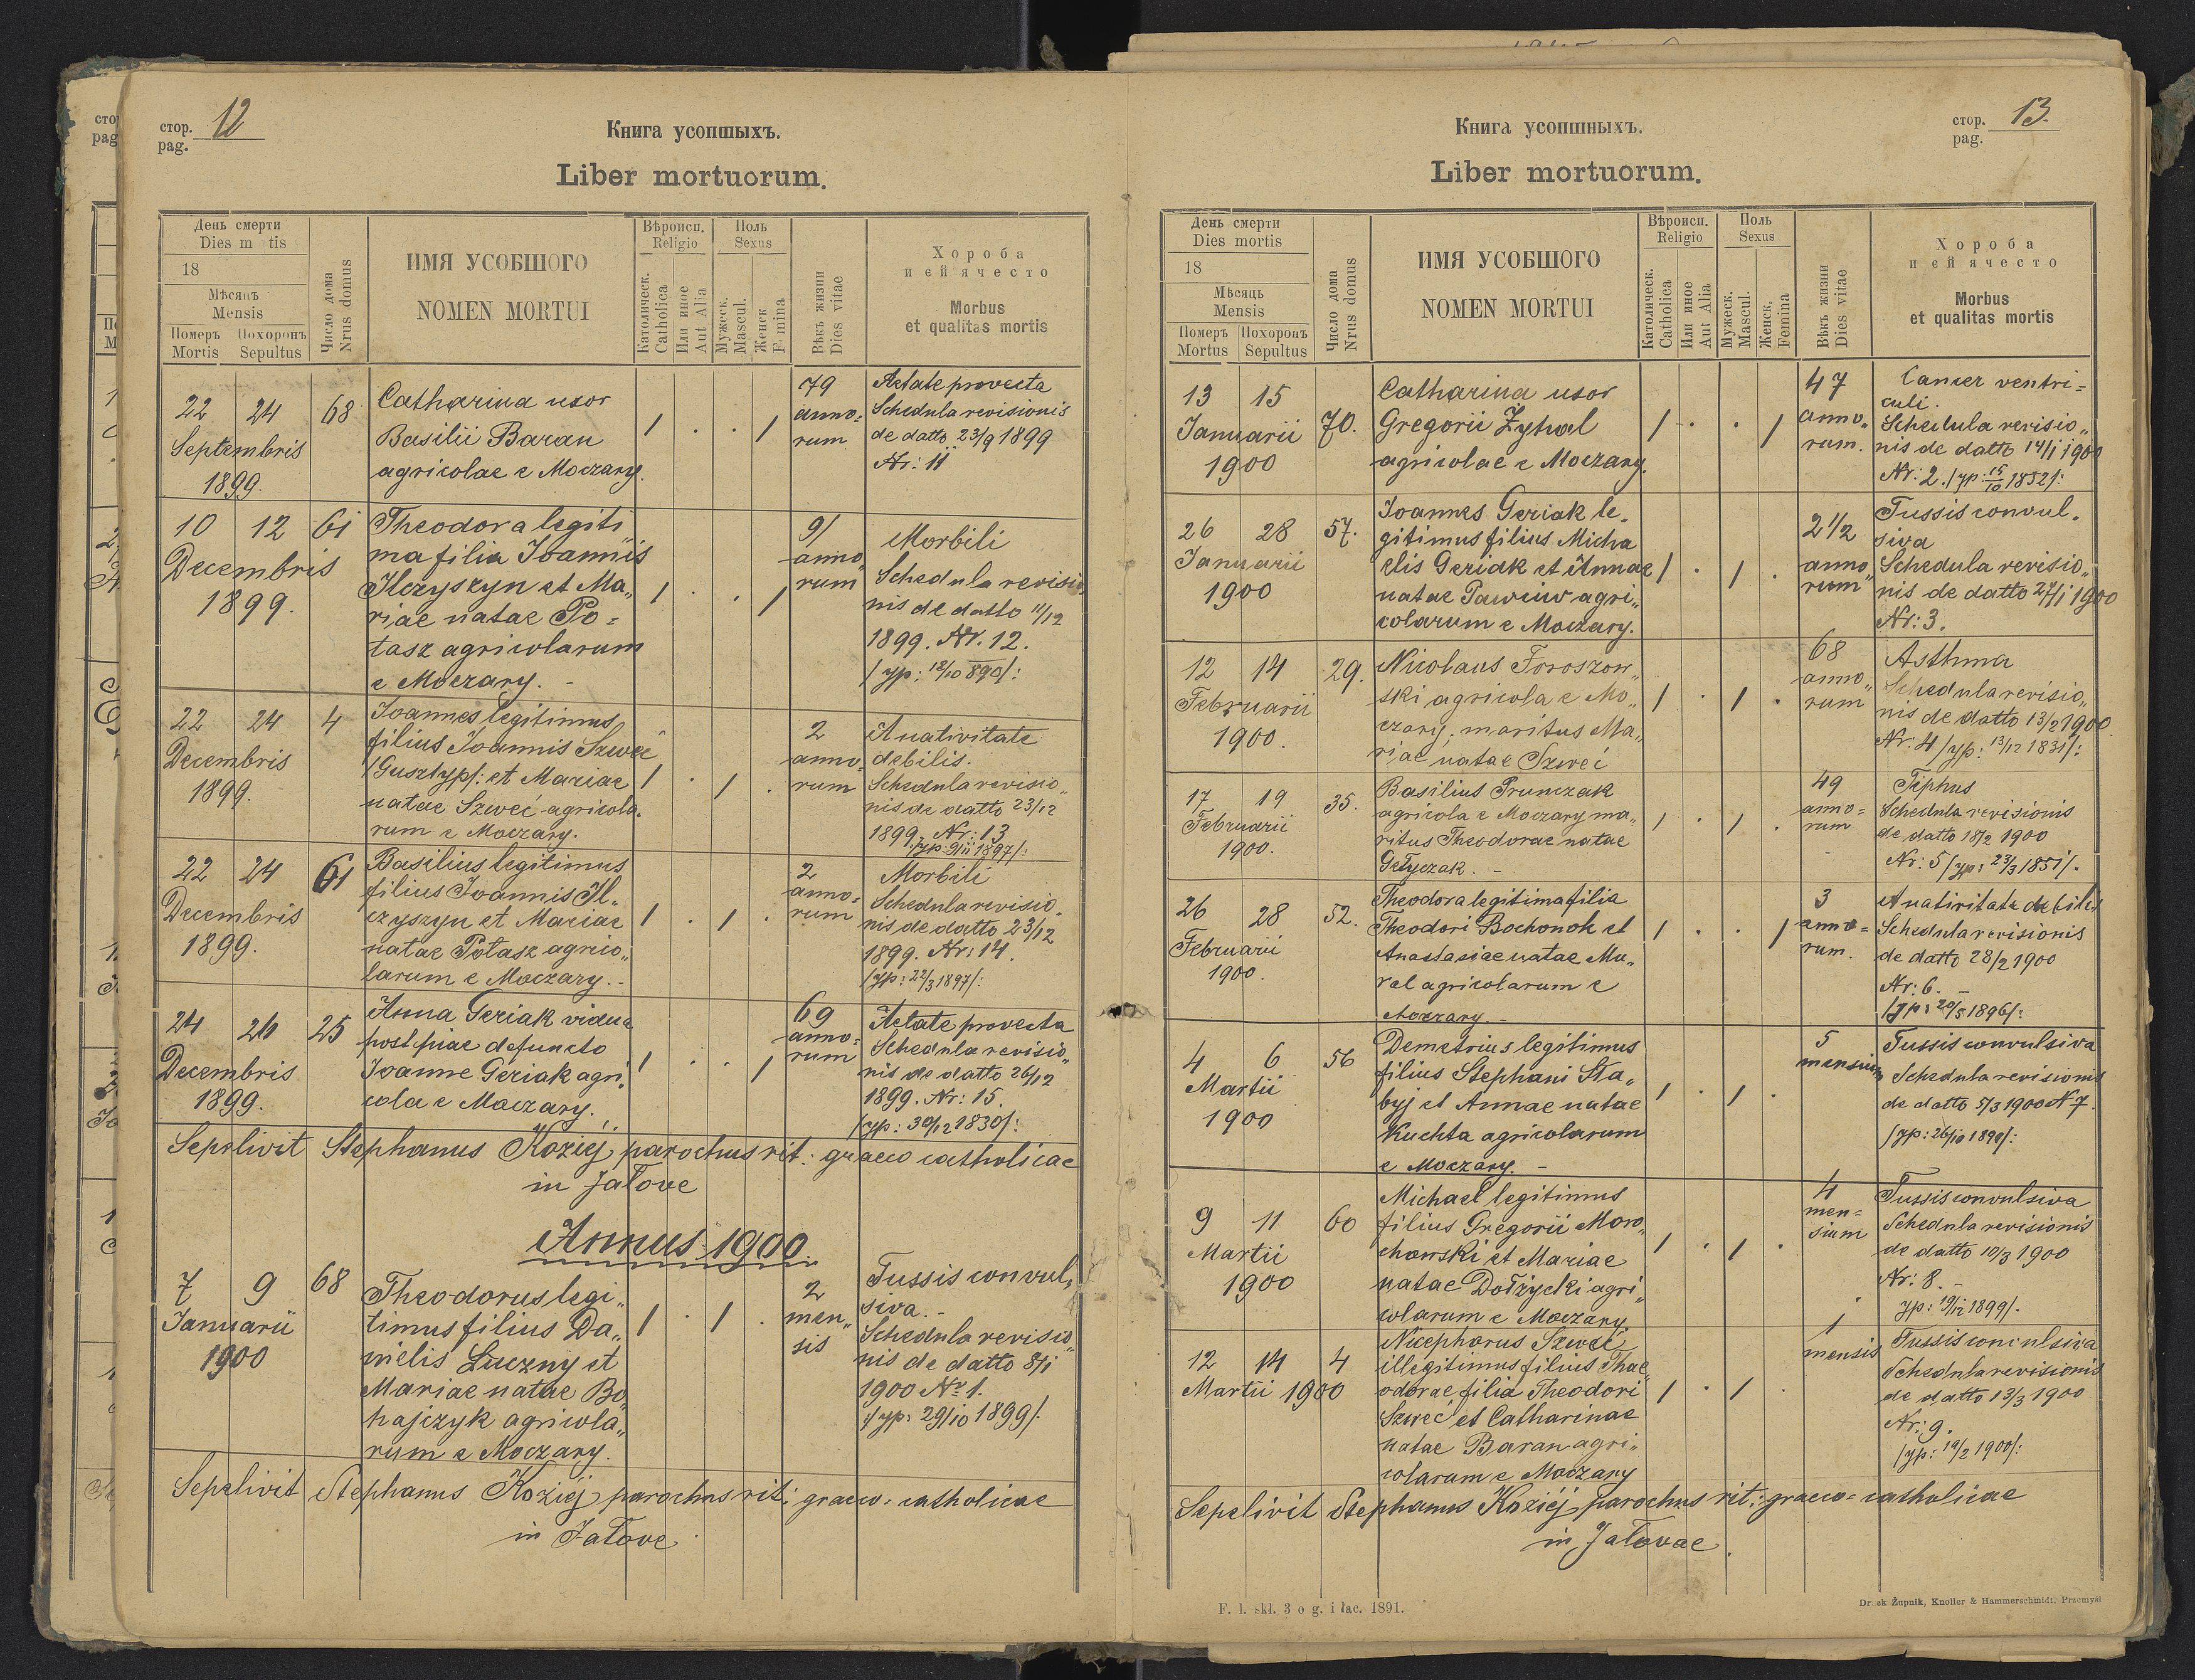 стор. 12
pag.
Книга усопшыхъ.
Liber mortuorum.
День смерти
Dies m tis
18
Мѣсяцъ
Mensis
Померъ Похоронъ
Mortis Sepultus
Число дома
Nrus domus
ИМЯ УСОБШОГО
NOMEN MORTUI
Вѣроисп.
Religio
Католическ.
Catholica
Или иное
Aut Alia
Поль
Sexus
Мужеск.
Mascul.
Женск
F mina
Вѣкъ жизни
Dies vitae
Хороба
и ей ячесто
Morbus
et qualitas mortis
22 24 68
Septembris
1899.
Catharina uxor
Basilii Baran
agricolae e Moczary.
1 . . 1
79
anno=
rum
Aetate provecta
Schedula revisionis
de datto 23/9 1899
Nr: 11
10 12 61
Decembris
1899.
Theodora legiti
ma filia Joannis
Ilczyszyn et Ma„
riae natae Po=
tasz agricolarum
e Moczary. -
1 . . 1
9/
anno„
rum
Morbili
Schedula revisio„
nis de datto 11/12
1899. Nr. 12.
/yp: 12/10 890/:
22 24 4
Decembris
1899.
Joannes legitimus
filius Joannis Szweć
/Gusztyp/: et Mariae
natae Szweć agricola.
rum e Moczary.
1 . 1 .
2
anno=
rum
A nativitate
debilis.
Schedula revisio„
nis de datto 23/12
1899. Nr: 13
/yp: 9/11 1897/:
22 24 61
Decembris
1899.
Basilius legitimus
filius Joannis Il„
czyszyn et Mariae
natae Potasz agrico„
larum e Moczary. -
1 . 1 .
2
anno=
rum
Morbili
Schedula revisio„
nis de datto 23/12
1899. Nr: 14.
/yp: 22/3 1897/:
24 26 25
Decembris
1899.
Anna Geziak vidua
post piae defuncto
Joanne Geziak agri„
cola e Moczary.
1 . . 1
69
anno=
rum
Aetate provecta
Schedula revisio„
nis de datto 26/12
1899. Nr: 15.
/yp: 30/12 1830/:
Sepelivit Stephanus Koziéj parochus rit: graeco catholicae
in Jałove
Annus 1900.
7 9 68
Januarii
1900
Theodorus legi„
timus filius Da„
nielis Łuczny et
Mariae natae Bo„
hajczyk agricola„
rum e Moczary.
1 . 1 .
2
men„
sis
Tussis convul„
siva. -
Schedula revisio„
nis de datto 8/1
1900 No 1.
/yp: 29/10 1899/.
Sepelivit Stephanus Koziéj parochus rit: graeco-catholicae
in Jałove
стор. 13.
pag.
Книга усопшныхъ.
Liber mortuorum.
День смерти
Dies mortis
18
Мѣсяцъ
Mensis
Померъ Похоронъ
Mortus Sepultus
Число дома
Nrus domus
ИМЯ УСОБШОГО
NOMEN MORTUI
Вѣроисп.
Religio
Католическ.
Catholica
Или иное
Aut Alia
Поль
Sexus
Мужеск.
Mascul.
Женск.
Femina
Вѣкъ жизни
Dies vitae
Хороба
и ей ячесто
Morbus
et qualitas mortis
13 15 70.
Januarii
1900
Catharina uxor
Gregorii Żytwal
agricolae e Moczary.
1 . . 1
47
anno„
rum.
Cancer ventri=
culi.
Schedula revisio„
nis de datto 14/1 1900
Nr: 2. /yp: 15/10 1852/:
26 28 57.
Januarii
1900
Joannes Geziak le„
gitimus filius Micha
elis Geziak et Annae
natae Pawciw agri„
colarum e Moczary.
1 . 1 .
2 1/2
anno„
rum
Tussis convul„
siva
Schedula revisio„
nis de datto 27/1 1900
Nr: 3.
12 14 29.
Februarii
1900.
Nicolaus Foroszow„
ski agricola e Mo„
czary, maritus Ma„
riae natae Szweć
1 . 1 .
68
anno„
rum
Asthma
Schedula revisio„
nis de datto 13/2 1900.
Nr: 4 /yp: 13/12 1831/:
17 19 35.
Februarii
1900.
Basilius Prunczak
agricola e Moczary ma„
ritus Theodorae natae
Gełyczak. -
1 . 1 .
49
anno=
rum
Tiphus
Schedula revisionis
de datto 18/2 1900
Nr: 5 /yp: 23/3 1851/.
26 28 52.
Februarii
1900.
Theodora legitima filia
Theodori Bochonok et
Anastasiae natae Mu„
ral agricolarum e
Moczary. -
1 . . 1
3
anno=
rum.
A nativitate debilis
Schedula revisionis
de datto 28/2 1900
Nr: 6. -
/yp: 20/5 1896/:
4 6 56
Martii
1900
Demetrius legitimus
filius Stephani Sta„
byj et Annae natae
Kuchta agricolarum
e Moczary. -
1 . 1 .
5
mensium
Tussis convulsiva
Schedula revisionis
de datto 5/3 1900 N 7.
/yp: 26/10 1899/:
9 11 60
Martii
1900
Michael legitimus
filius Gregorii Moro„
chowski et Mariae
natae Dołżycki agri„
colarum e Moczary.
1 . 1 .
4
men=
sium
Tussis convulsiva
Schedula revisionis
de datto 10/3 1900
Nr: 8. -
yp: 19/12 1899/.
12 14 4
Martii 1900
Nicephorus Szweć
illegitimus filius Thae„
odorae filia Theodori
Szweć et Catharinae
natae Baran agri„
colarum e Moczary
1 . 1 .
1
mensis
Tussis convulsiva
Schedula revisionis
de datto 13/3 1900
Nr: 9.
/yp: 19/2 1900/:
Sepelivit Stephanus Koziéj parochus rit: graeco=catholicae
in Jałovae.
F. l. skł. 3 o g. i łac. 1891.
Dr. ok Żupnik, Knoller & Hammerschmidt, Przemyśl